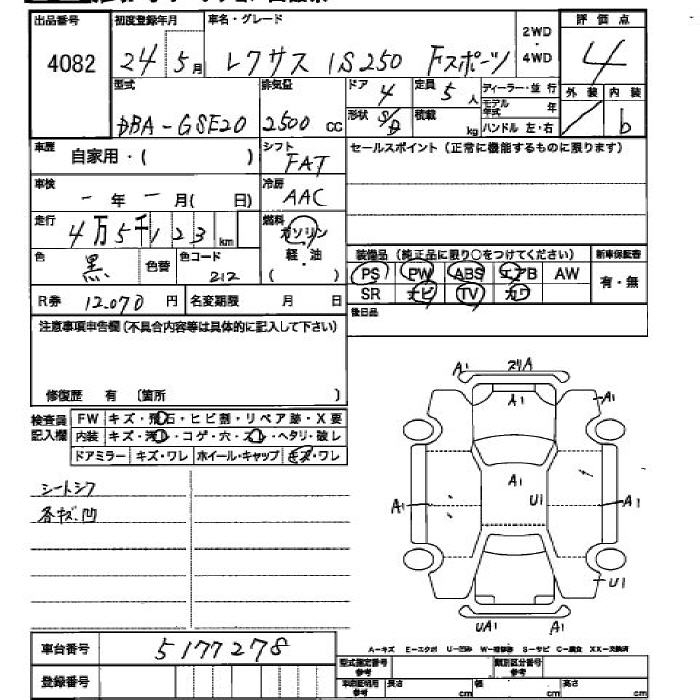 出品番号 初度登録年月 車名・グレード 2WD・4WD 評価点
4082 24 5月 レクサス IS250 Fスポーツ 4
型式 排気量 ドア 4 定員 5人 ディーラー・並行 外装 内装
DBA-GSE20 2500cc 形状 S/D 積載 kg モデル年式 年 ハンドル 左・右 b
車歴 自家用・( ) シフト FAT セールスポイント (正常に機能するものに限ります)
車検 - 年 - 月( 日) 冷房 AAC
走行 4万5千123km 燃料 ガソリン 軽・油 ( )
色 黒 色替 色コード 212
装備品 (純正品に限り○をつけてください) 新車保証書
PS PW ABS エアB AW 有・無
SR ナビ TV カワ
R券 12.070円 名変期限 月 日
後日品
注意事項申告欄(不具合内容等は具体的に記入して下さい)
修復歴 有 〔箇所 〕
検査員記入欄 FW キズ・飛石・ヒビ割・リペア跡・X要
内装 キズ・汚レ・コゲ・穴・スレ・ヘタリ・破レ
ドアミラー キズ・ワレ ホイール・キャップ キズ・ワレ
シートシワ
各キズ.凹
A1 A1
A1
A1
A1 U1 A1
U1
UA1 A1
A-キズ E-エクボ U-凹み W-補修跡 S-サビ C-腐食 XX-交換済
車台番号 5177278
型式指定番号 参考 類別区分番号 参考
登録番号 参考 長さ cm 幅 cm 高さ cm